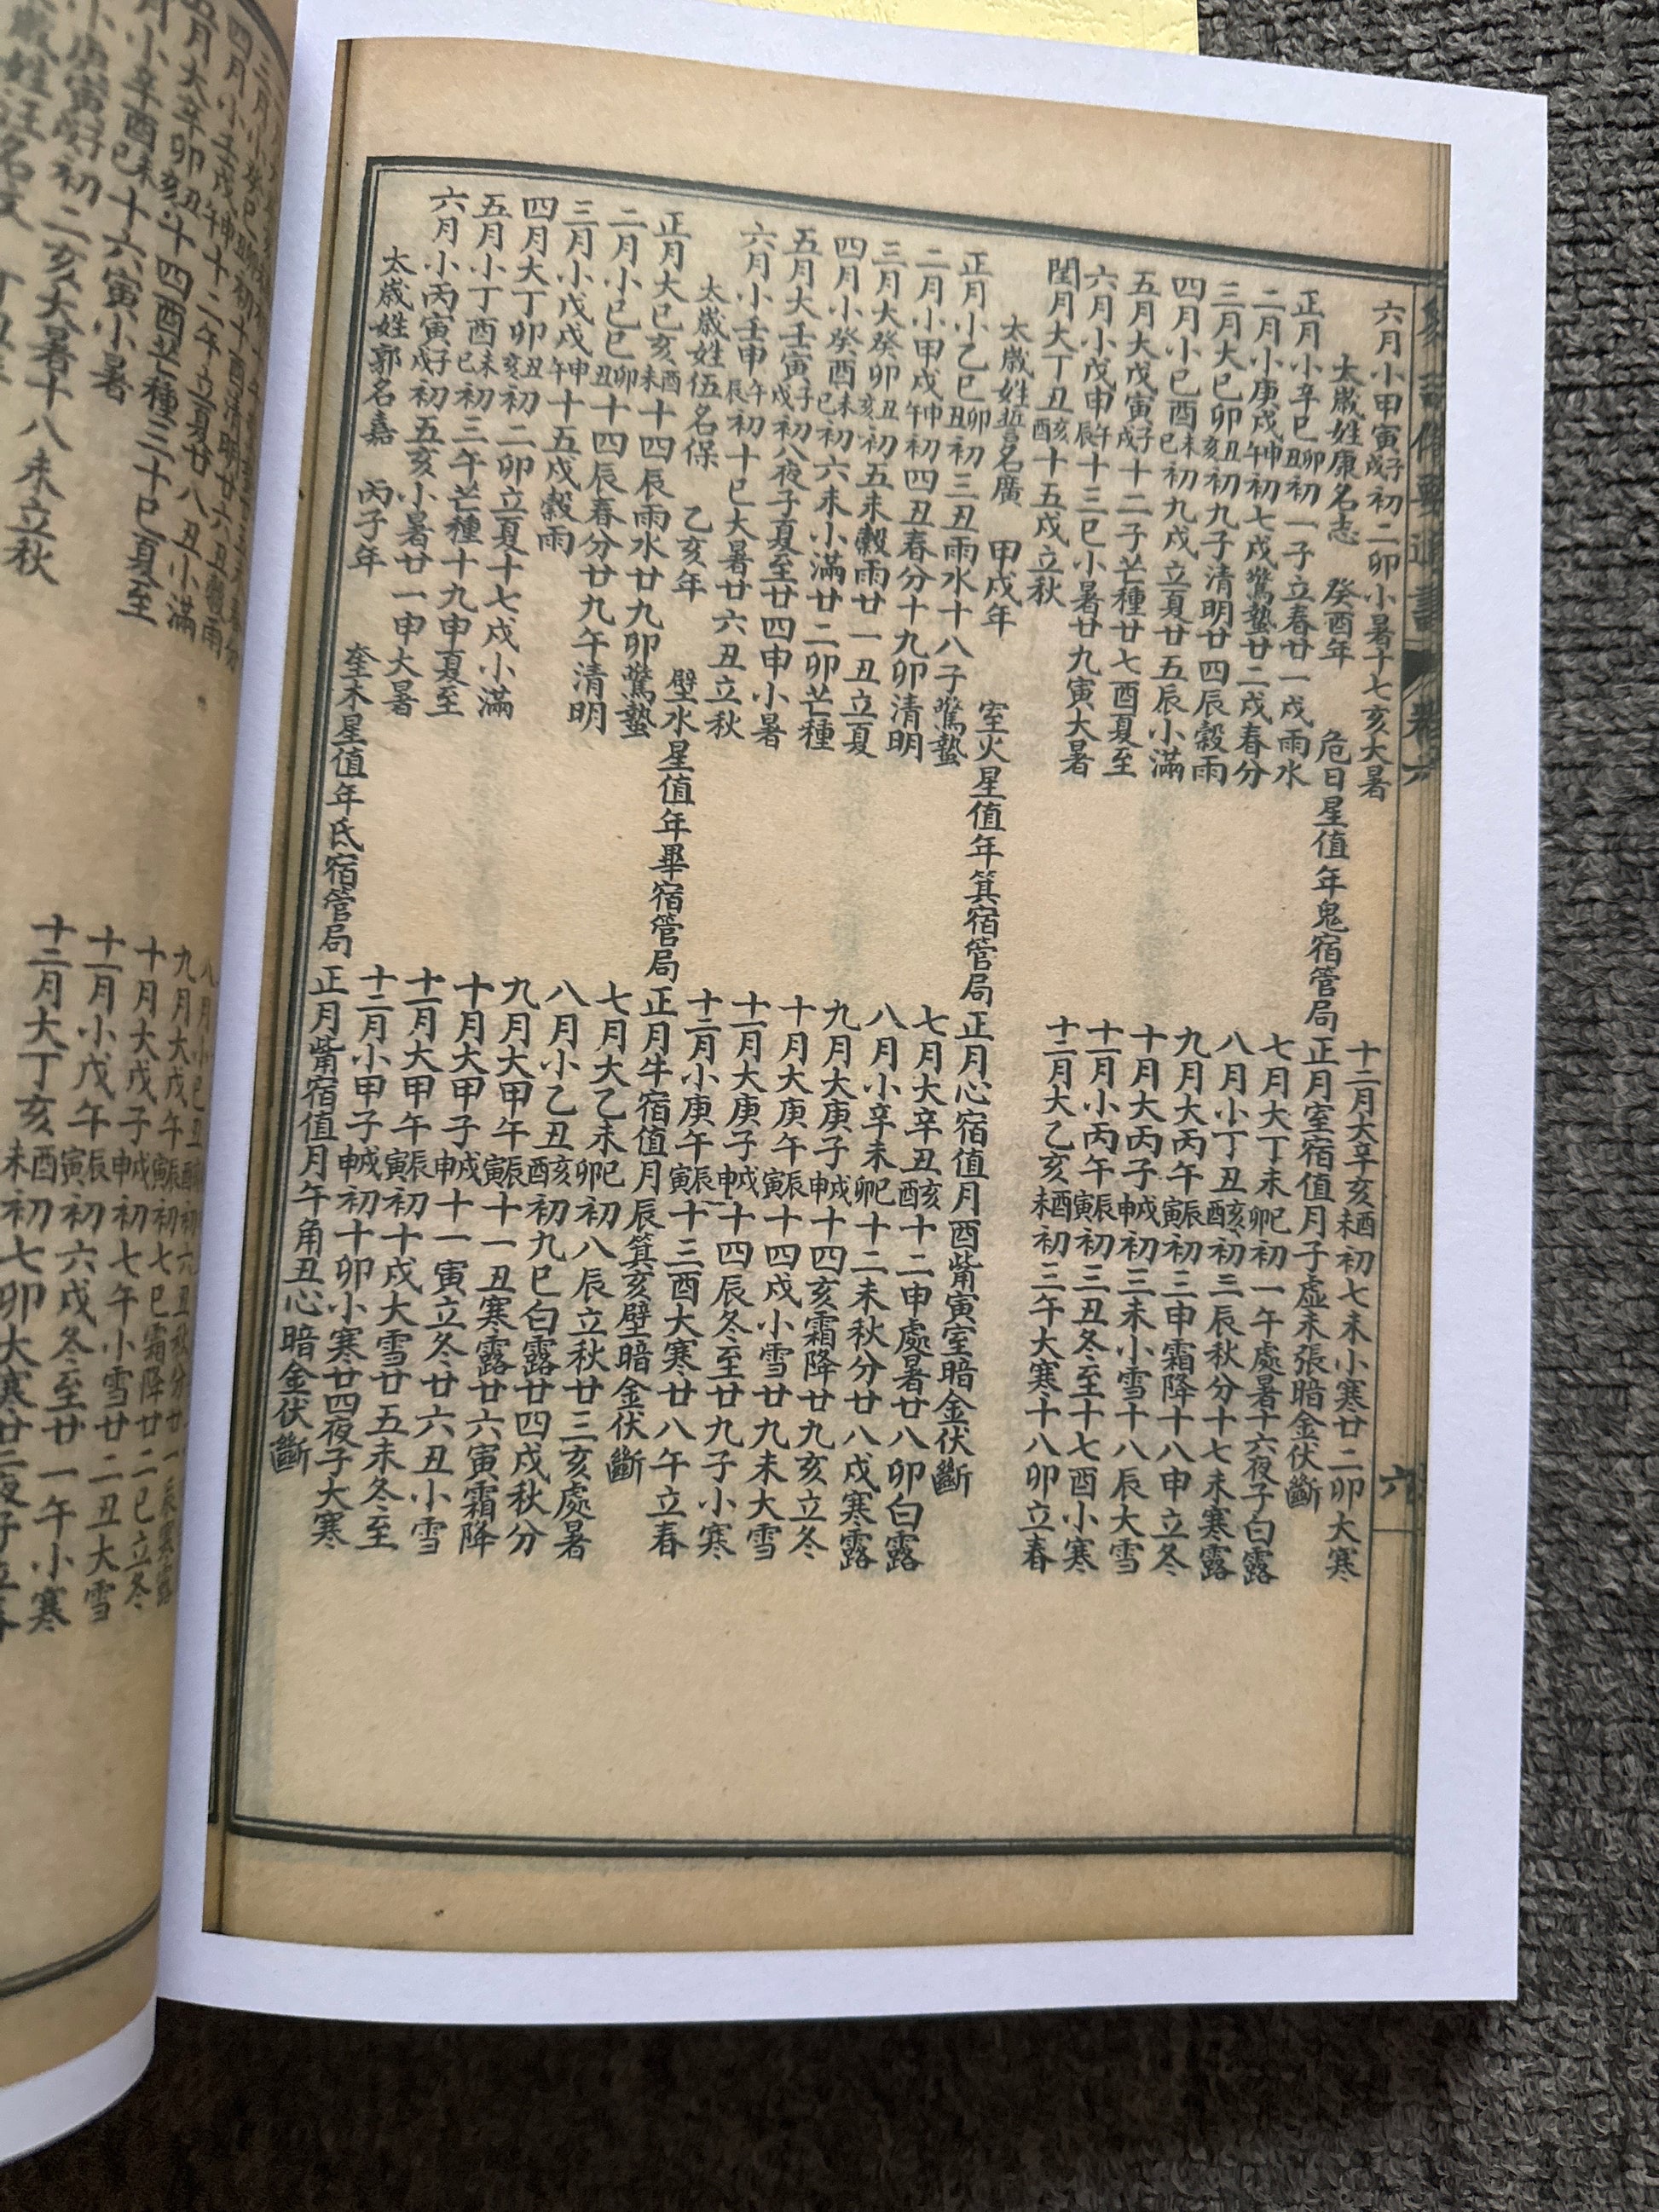 備要通書 卷六 六
六月小甲寅子戌初二卯小暑十七亥大暑 十二月大辛亥酉未初七未小寒廿二卯大寒
太歲姓康名志 癸酉年 危日星值年鬼宿管局 正月室宿值月子虛未張暗金伏斷
正月小辛巳卯丑初一子立春廿一戌雨水 七月大丁未巳卯初一午處暑十六夜子白露
二月小庚戌申午初七戌驚蟄廿二戌春分 八月小丁丑亥酉初三辰秋分十七未寒露
三月大己卯丑亥初九子清明廿四辰穀雨 九月大丙午辰寅初三申霜降十八申立冬
四月小己酉未巳初九戌立夏廿五辰小滿 十月大丙子戌申初三未小雪十八辰大雪
五月大戊寅子戌十二子芒種廿七酉夏至 十一月小丙午辰寅初三丑冬至十七酉小寒
六月小戊申午辰十三巳小暑廿九寅大暑 十二月大乙亥酉未初三午大寒十八卯立春
閏月大丁丑亥酉十五戌立秋
太歲姓誓名廣 甲戌年 室火星值年箕宿管局 正月心宿值月酉觜寅室暗金伏斷
正月小乙巳卯丑初三丑雨水十八子驚蟄 七月大辛丑亥酉十二申處暑廿八卯白露
二月小甲戌申午初四丑春分十九卯清明 八月小辛未巳卯十二未秋分廿八戌寒露
三月大癸卯丑亥初五未穀雨廿一丑立夏 九月大庚子戌申十四亥霜降廿九亥立冬
四月小癸酉未巳初六未小滿廿二卯芒種 十月大庚午辰寅十四戌小雪廿九未大雪
五月大壬寅子戌初八夜子夏至廿四申小暑 十一月大庚子戌申十四辰冬至廿九子小寒
六月小壬申午辰初十巳大暑廿六丑立秋 十二月小庚午辰寅十三酉大寒廿八午立春
太歲姓伍名保 乙亥年 壁水星值年畢宿管局 正月牛宿值月辰箕亥壁暗金伏斷
正月大己亥酉未十四辰雨水廿九卯驚蟄 七月大乙未巳卯初八辰立秋廿三亥處暑
二月小己巳卯丑十四辰春分廿九午清明 八月小乙丑亥酉初九巳白露廿四戌秋分
三月小戊戌申午十五戌穀雨 九月大甲午辰寅十一丑寒露廿六寅霜降
四月大丁卯丑亥初二卯立夏十七戌小滿 十月大甲子戌申十一寅立冬廿六丑小雪
五月小丁酉未巳初三午芒種十九申夏至 十一月大甲午辰寅初十戌大雪廿五未冬至
六月小丙寅子戌初五亥小暑廿一申大暑 十二月小甲子戌申初十卯小寒廿四夜子大寒
太歲姓郭名嘉 丙子年 奎木星值年氐宿管局 正月觜宿值月午角丑心暗金伏斷
十二午立夏廿八丑小滿 十月大戊子戌申初七午小雪廿二丑大雪
十四酉芒種三十巳夏至 十一月小戊午辰寅初六戌冬至廿一午小寒
十六寅小暑 十二月大丁亥酉未初七卯大寒廿二夜子立春
初二亥大暑十八未立秋